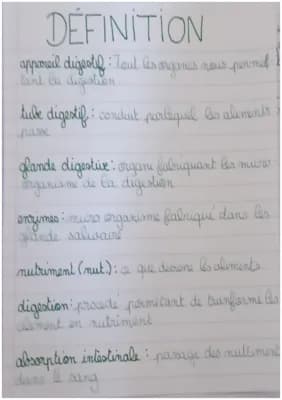 DÉFINITION
appareil digestif : Tout les organes nous permet
tant la digestion
tube digestif : conduit par lequel les aliments
passe
glande digestive : organe fabriquant les micro
organisme de la digestion
enzymes : micro organisme fabriqué dans les
glande salivaire
nutriment (nut.) : ce que devene les aliments
digestion : procédé permettant de transforme les
aliment en nutriment
absorption intestinale : passage des nutriment
dans le sang